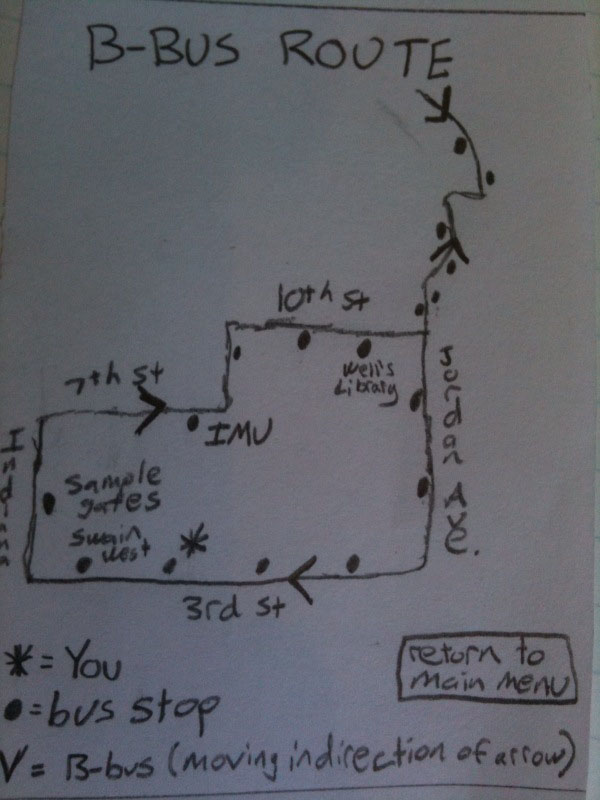 B-BUS ROUTE
10th St
Well's
Library
Jordan Ave.
7th St
IMU
Indiana
Sample
gates
Swain
West
3rd St
* = You
• = bus stop
V = B-bus (moving in direction of arrow)
return to
main menu